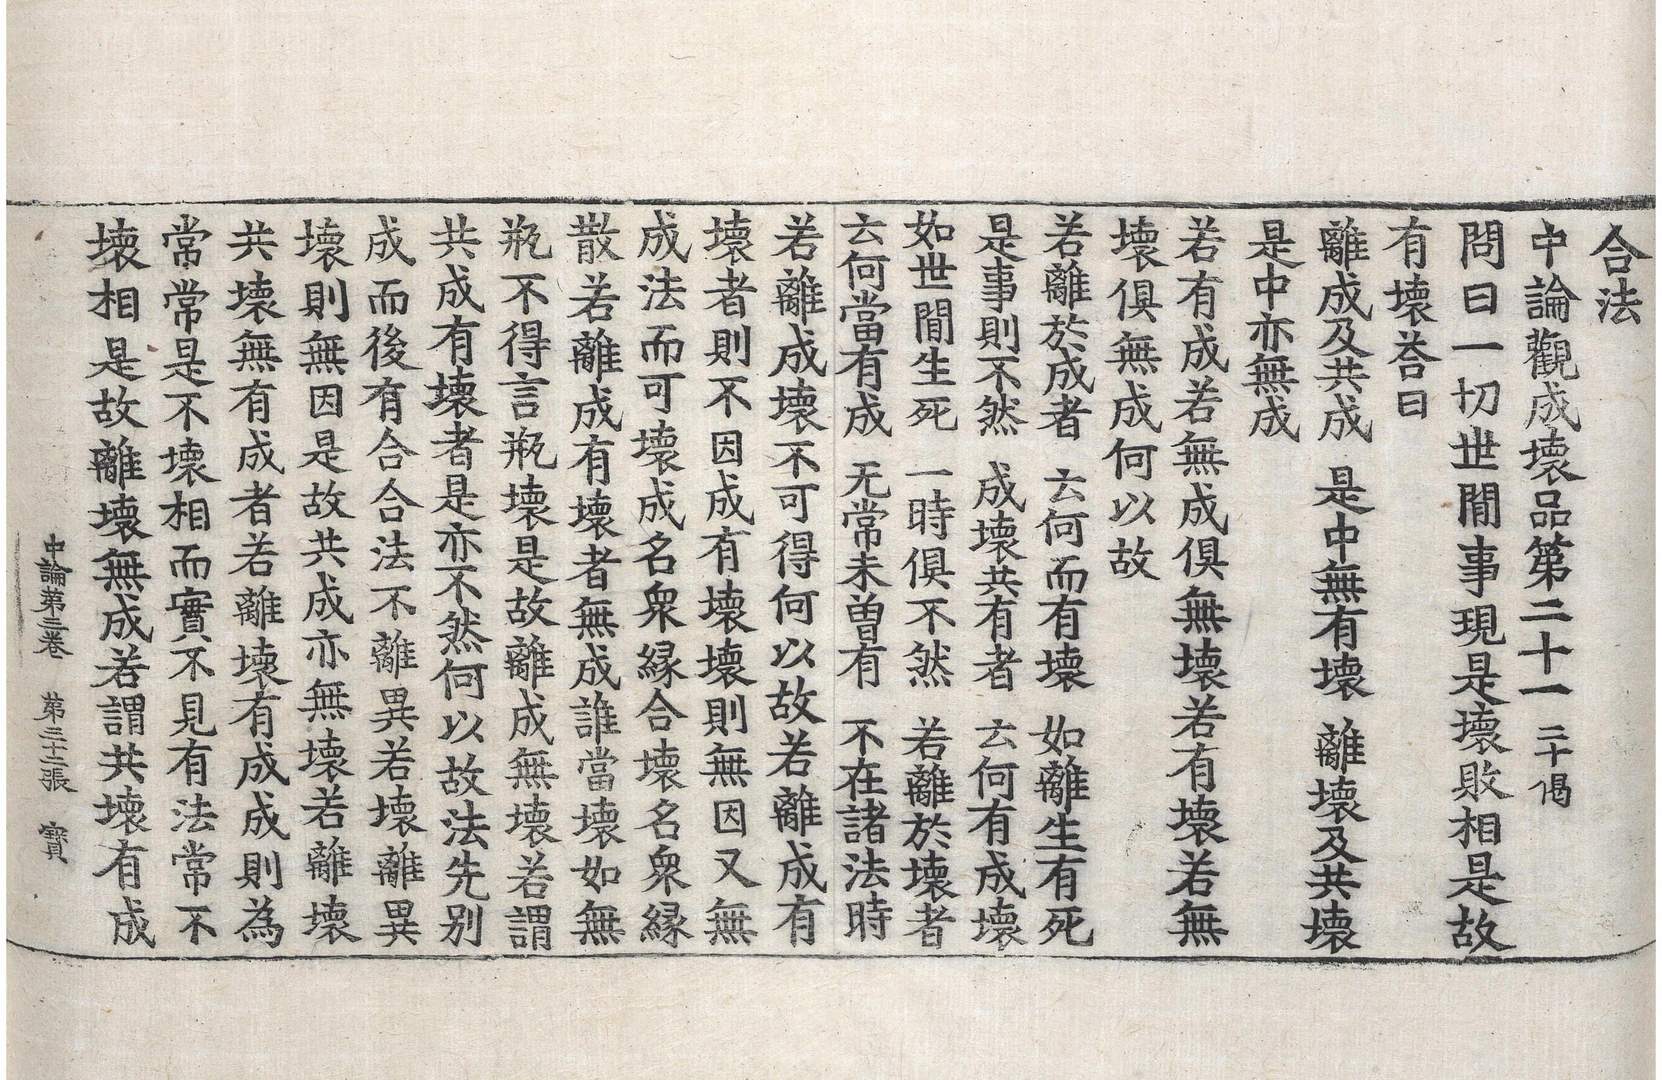 合法
中論觀成壞品第二十一 二十偈
問曰一切世間事現是壞敗相是故
有壞荅曰
離成及共成 是中無有壞 離壞及共壞
是中亦無成
若有成若無成俱無壞若有壞若無
壞俱無成何以故
若離於成者 云何而有壞 如離生有死
是事則不然 成壞共有者 云何有成壞
如世間生死 一時俱不然 若離於壞者
云何當有成 无常未曾有 不在諸法時
若離成壞不可得何以故若離成有
壞者則不因成有壞壞則無因又無
成法而可壞成名衆緣合壞名衆緣
散若離成有壞者無成誰當壞如無
瓶不得言瓶壞是故離成無壞若謂
共成有壞者是亦不然何以故法先別
成而後有合合法不離異若壞離異
壞則無因是故共成亦無壞若離壞
共壞無有成者若離壞有成成則為
常常是不壞相而實不見有法常不
壞相是故離壞無成若謂共壞有成
中論第三卷 第二十二張 寶